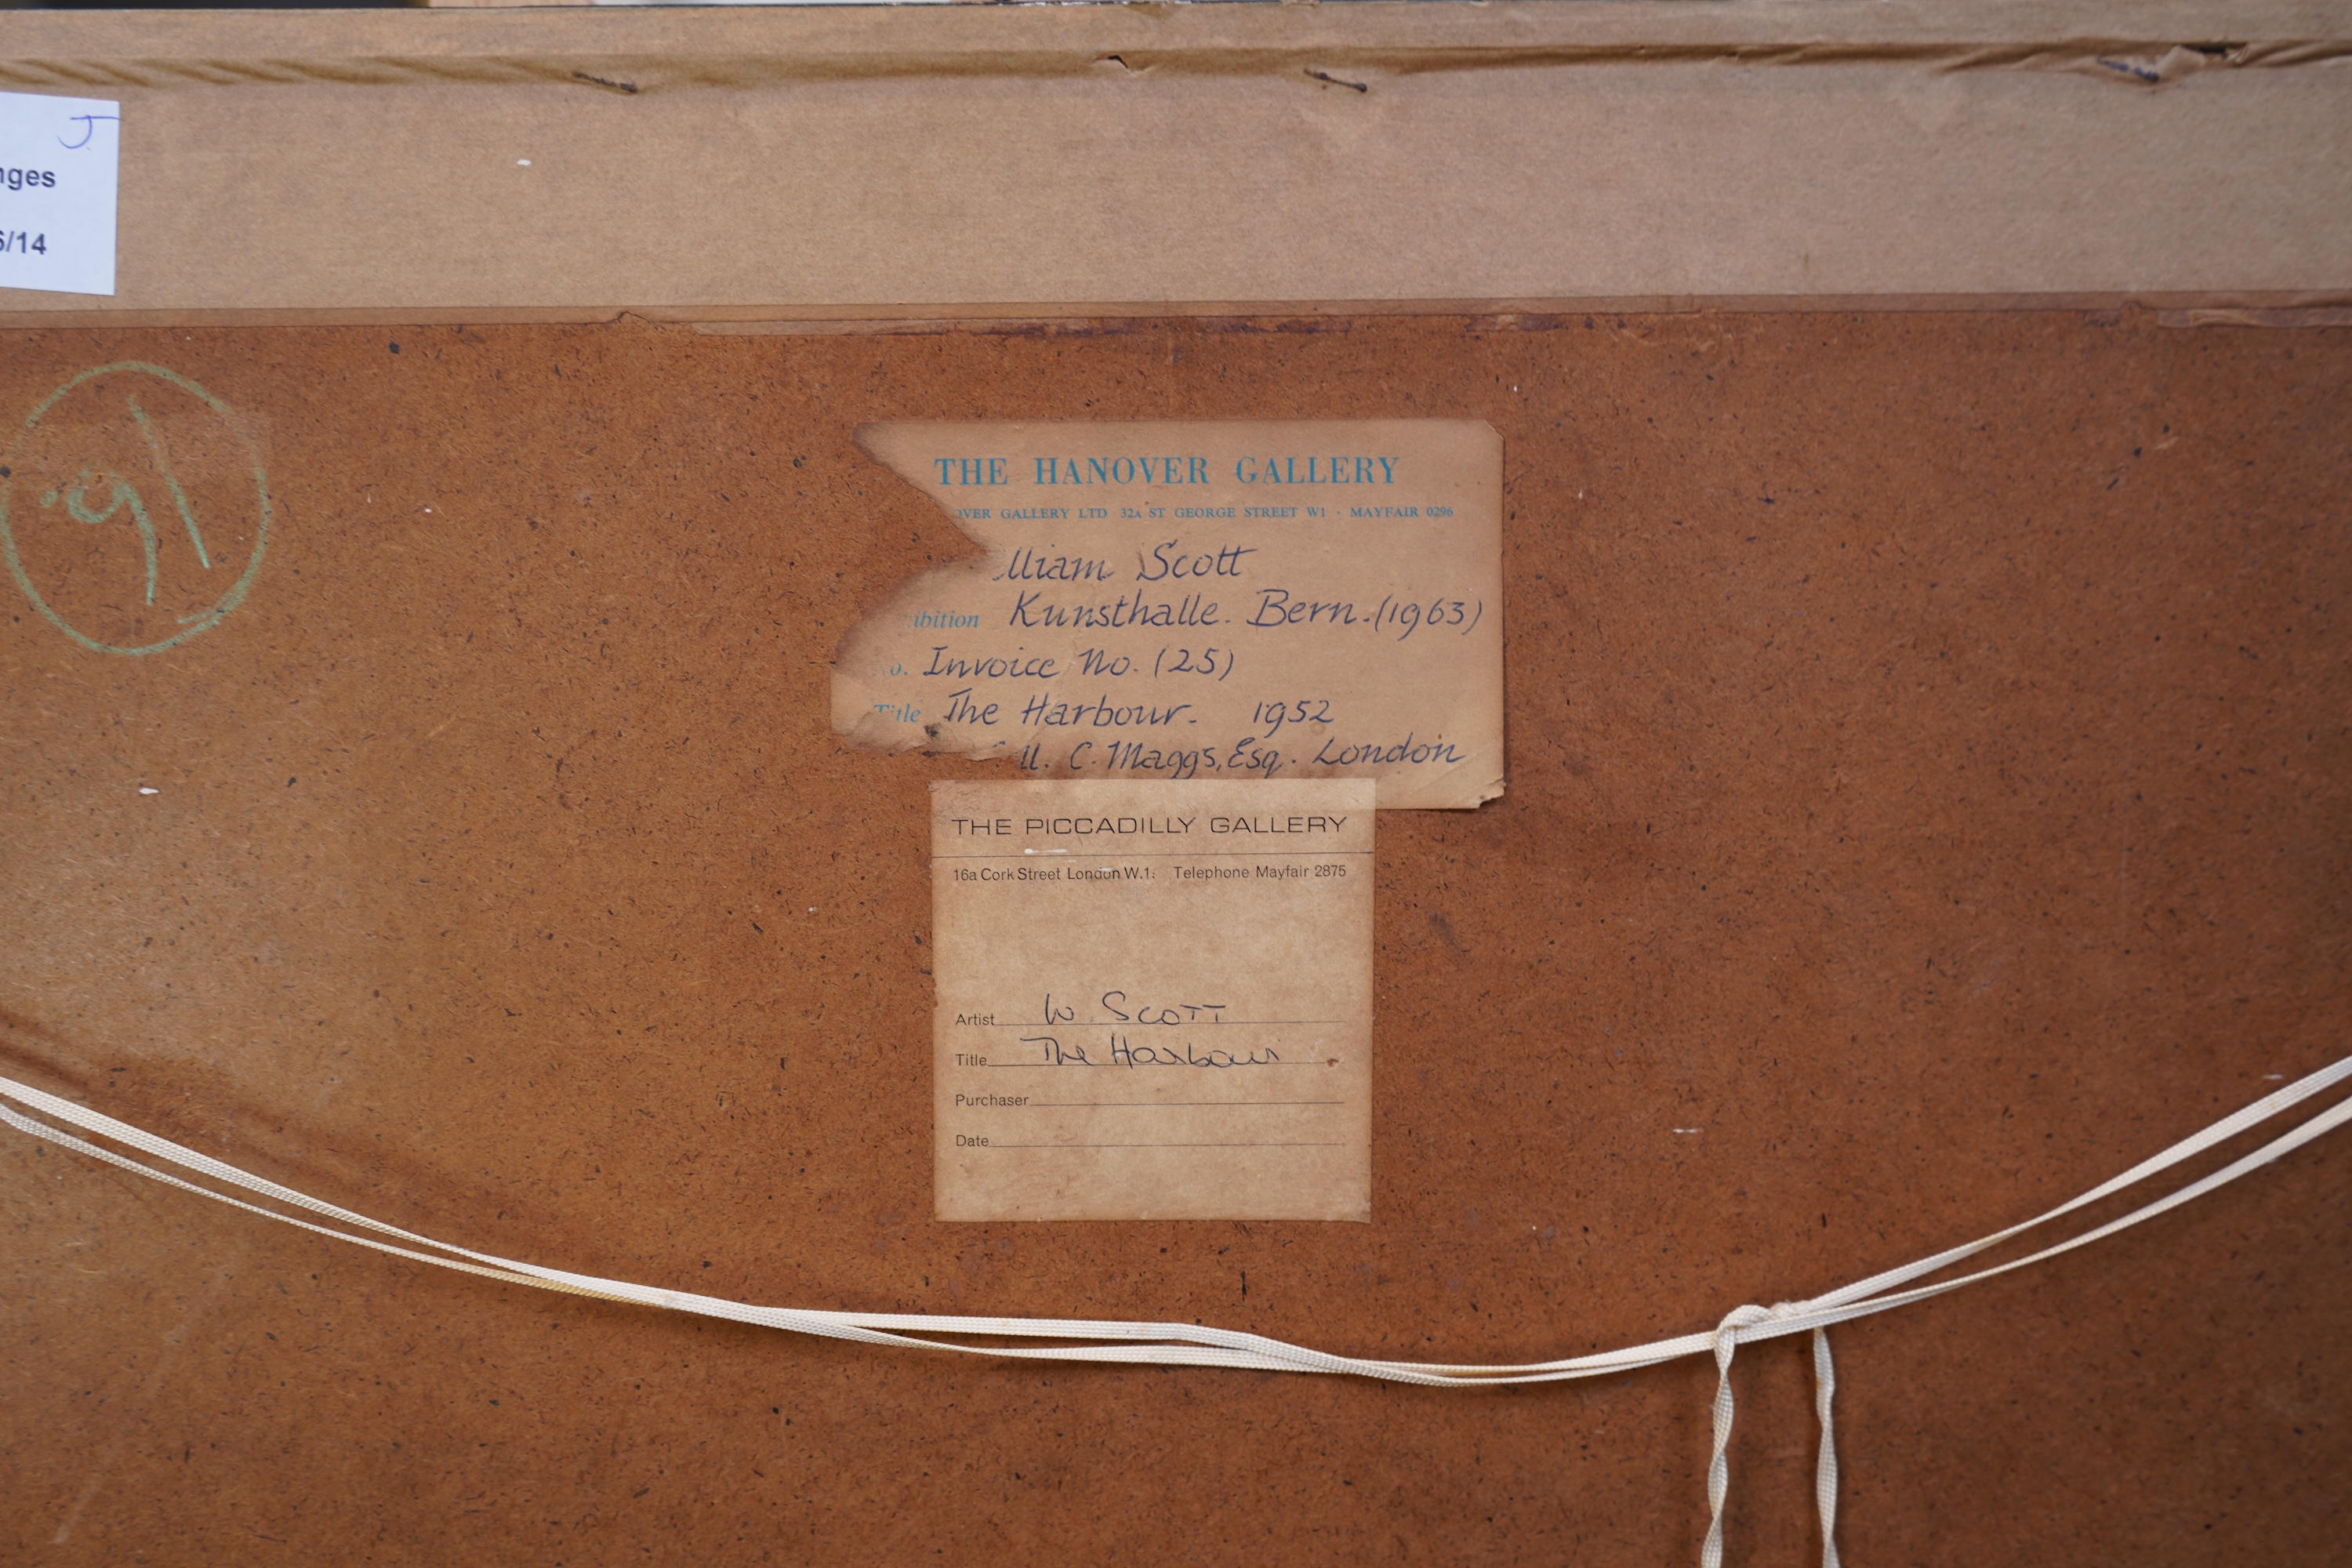 J.
nges
6/14
91
THE HANOVER GALLERY
OVER GALLERY LTD 32A ST GEORGE STREET W1 · MAYFAIR 0296
lliam Scott
ibition Kunsthalle. Bern. (1963)
o. Invoice No. (25)
Title The Harbour. 1952
C. Maggs, Esq. London
THE PICCADILLY GALLERY
16a Cork Street London W.1. Telephone Mayfair 2875
Artist W. SCOTT
Title The Harbour
Purchaser
Date